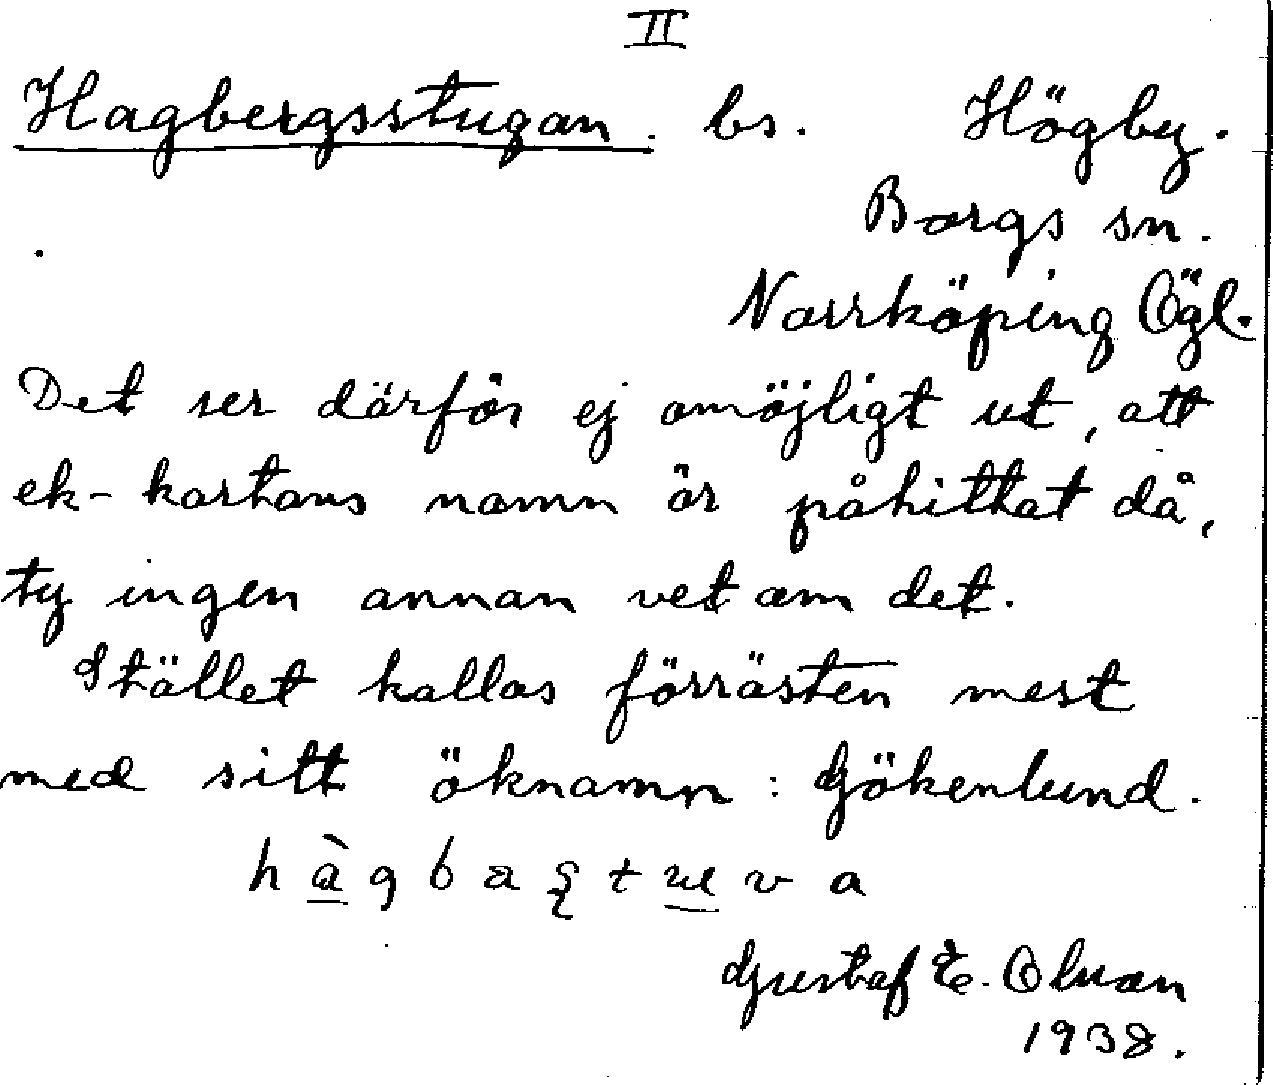 II
Hagbergsstugan. bs. Högby.
Borgs sn.
Norrköping Ögl.
Det ser därför ej omöjligt ut, att
ek-kartans namn är påhittat då,
ty ingen annan vet om det.
Stället kallas förrästen mest
med sitt öknamn: Gökenlund.
Gustaf E. Olsson
1938.